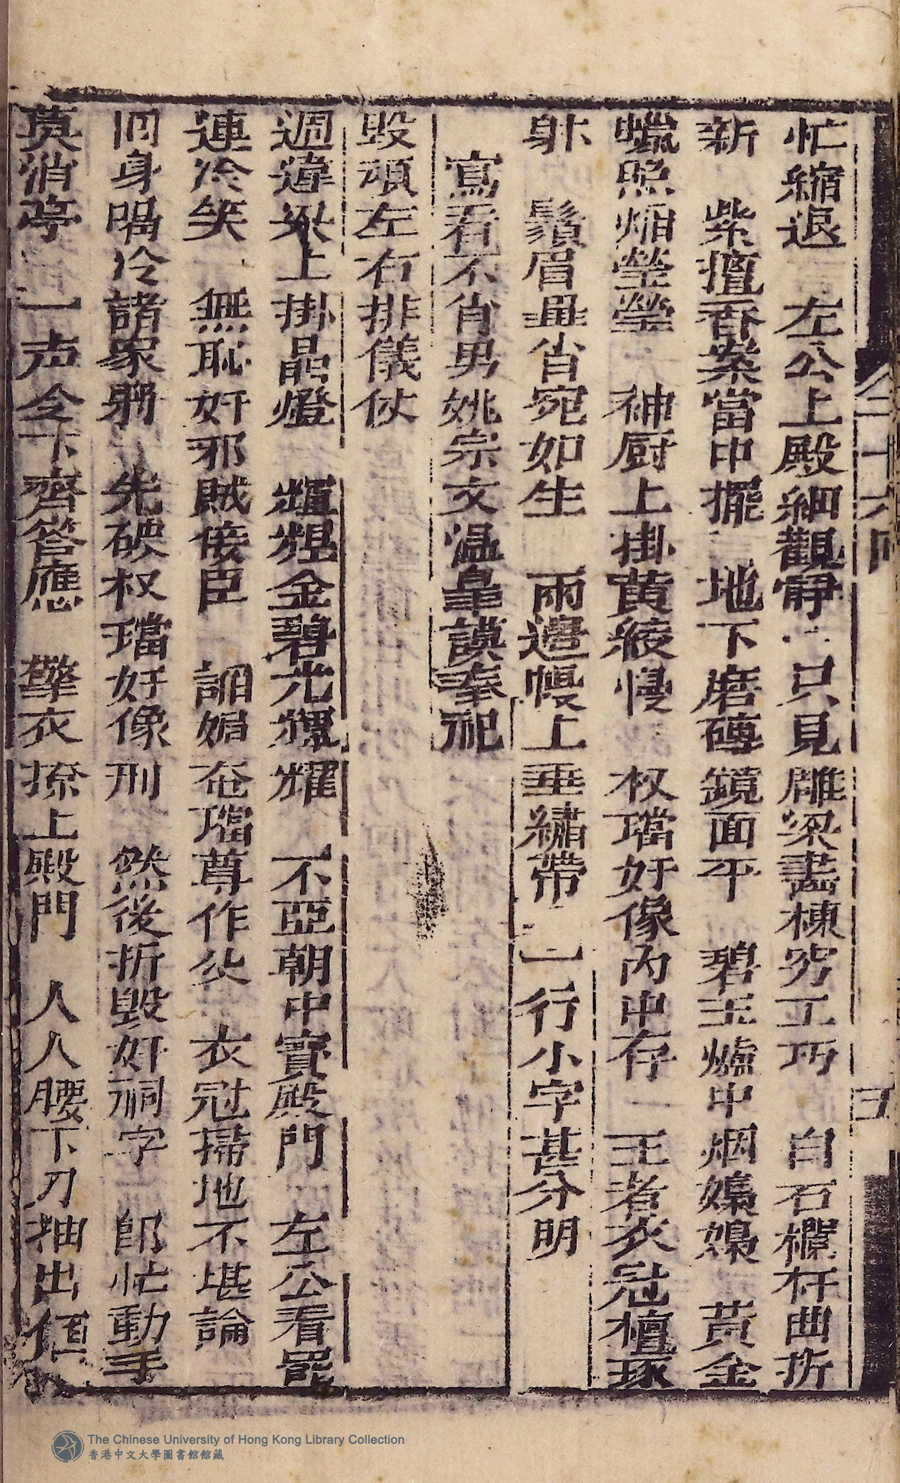 忙縮退　左公上殿細觀睜　只見雕梁畫棟穷工巧　白石欄杆曲折
新　紫擅香案當中擺　地下磨磚鏡面平　碧玉爐中烟嬝嬝　黃金
蠟照焑瑩瑩　神厨上掛黄綾幔　权璫奸像內中存　王者衣冠檀琢
躰　鬚眉毋肖宛如生　兩邊幔上垂繡帶　一行小字甚分明
寫着不肖男姚宗文温皐謨奉祀
殿頑左右排儀仗
週違梁上掛晶燈　輝煌金碧光輝耀　不亞朝中寳殿門　左公看罷
連冷笑　無恥奸邪賊佞臣　謟媚奄璫尊作父　衣冠掃地不堪論
囘身喝令諸家將　先破权璫奸像刑　然後折毀奸祠字　郎忙動手
莫消亭　一声令下齊答應　擎衣撩上殿門　人人腰下刀抽出
二十六回
五
The Chinese University of Hong Kong Library Collection
香港中文大學圖書館館藏